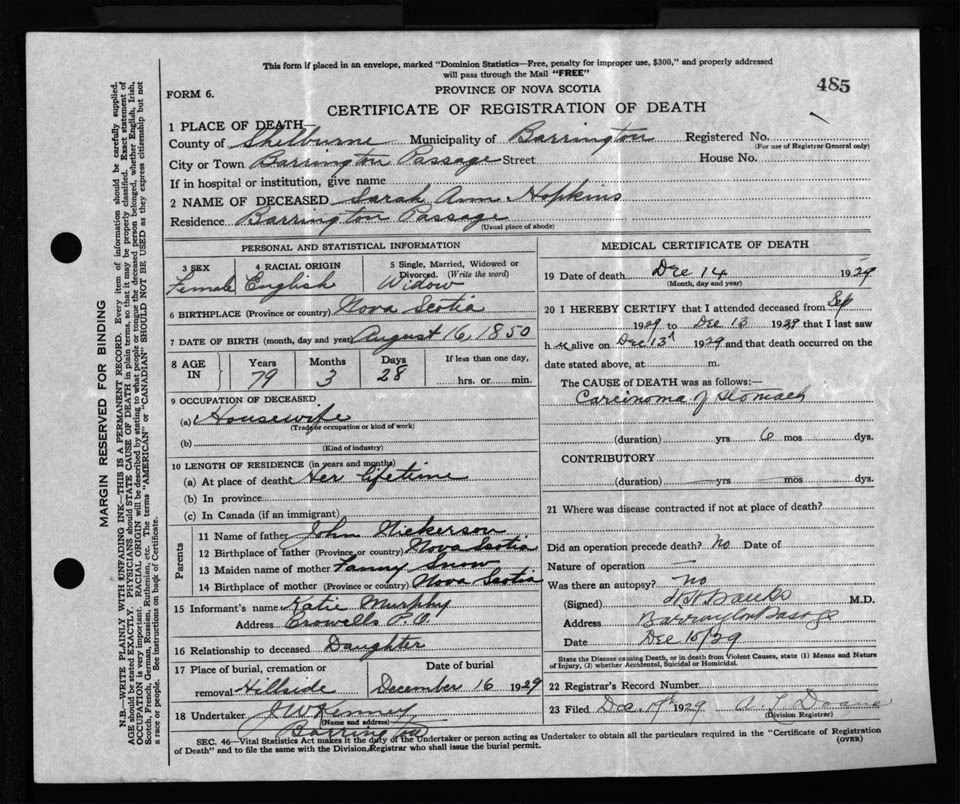 This form if placed in an envelope, marked "Dominion Statistics—Free, penalty for improper use, $300," and properly addressed
will pass through the Mail "FREE"
PROVINCE OF NOVA SCOTIA
485
FORM 6.
CERTIFICATE OF REGISTRATION OF DEATH
1 PLACE OF DEATH
County of Shelburne Municipality of Barrington Registered No.
(For use of Registrar General only)
City or Town Barrington Passage Street House No.
If in hospital or institution, give name
2 NAME OF DECEASED Sarah Ann Hopkins
Residence Barrington Passage
(Usual place of abode)
PERSONAL AND STATISTICAL INFORMATION
3 SEX 4 RACIAL ORIGIN 5 Single, Married, Widowed or
Divorced. (Write the word)
Female English Widow
6 BIRTHPLACE (Province or country) Nova Scotia
7 DATE OF BIRTH (month, day and year) August 16, 1850
8 AGE IN Years Months Days If less than one day,
79 3 28 hrs. or min.
9 OCCUPATION OF DECEASED
(a) Housewife
(Trade or occupation or kind of work)
(b)
(Kind of industry)
10 LENGTH OF RESIDENCE (in years and months)
(a) At place of death Her lifetime
(b) In province
(c) In Canada (if an immigrant)
Parents
11 Name of father John Nickerson
12 Birthplace of father (Province or country) Nova Scotia
13 Maiden name of mother Fanny Snow
14 Birthplace of mother (Province or country) Nova Scotia
15 Informant's name Katie Murphy
Address Crowells P.O.
16 Relationship to deceased Daughter
17 Place of burial, cremation or Date of burial
removal Hillside December 16 1929
18 Undertaker J W Kenney
(Name and address)
Barrington
MEDICAL CERTIFICATE OF DEATH
19 Date of death Dec 14 1929
(Month, day and year)
20 I HEREBY CERTIFY that I attended deceased from Sep
1929 to Dec 13 1929 that I last saw
h er alive on Dec 13th 1929 and that death occurred on the
date stated above, at m.
The CAUSE of DEATH was as follows:—
Carcinoma of Stomach
(duration) yrs 6 mos dys.
CONTRIBUTORY
(duration) yrs mos dys.
21 Where was disease contracted if not at place of death?
Did an operation precede death? No Date of
Nature of operation
Was there an autopsy? No
(Signed) Banks M.D.
Address Barrington Passage
Date Dec 15/29
State the Disease causing Death, or in death from Violent Causes, state (1) Means and Nature
of Injury, (2) whether Accidental, Suicidal or Homicidal.
22 Registrar's Record Number
23 Filed Dec 17th 1929 Doane
(Division Registrar)
SEC. 46—Vital Statistics Act makes it the duty of the Undertaker or person acting as Undertaker to obtain all the particulars required in the "Certificate of Registration
of Death" and to file the same with the Division Registrar who shall issue the burial permit.
(OVER)
MARGIN RESERVED FOR BINDING
N.B.—WRITE PLAINLY WITH UNFADING INK—THIS IS A PERMANENT RECORD. Every item of information should be carefully supplied.
AGE should be stated EXACTLY. PHYSICIANS should STATE CAUSE OF DEATH in plain terms, so that it may be properly classified. Exact statement of
OCCUPATION is very important. RACIAL ORIGIN will be described by stating to what people or tongue the deceased person belonged, whether English, Irish,
Scotch, French, German, Russian, Ruthenian, etc. The terms "AMERICAN" or "CANADIAN" SHOULD NOT BE USED as they express citizenship but not
a race or people. See instructions on back of Certificate.